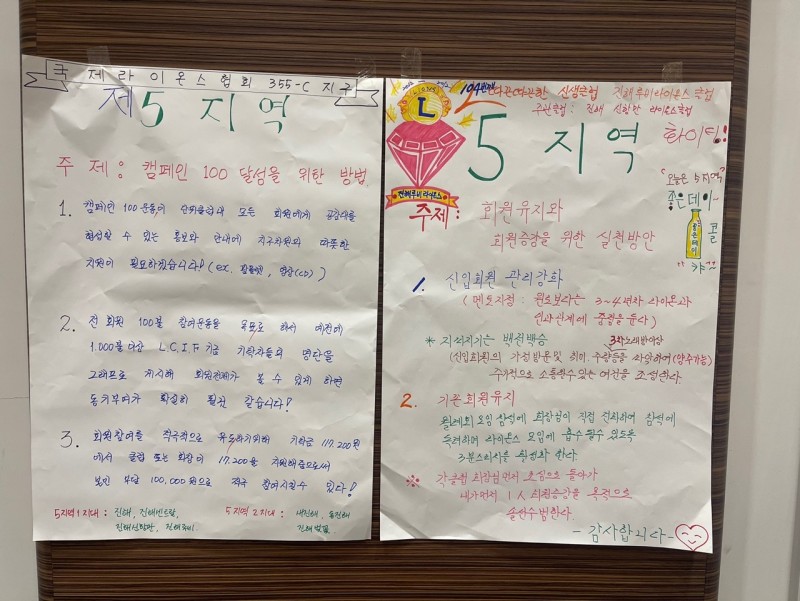 국제라이온스협회 355-C 지구
제5지역
주제 : 캠페인 100 달성을 위한 방법.
1. 캠페인 100운동에 단위클럽내 모든 회원에게 공감대를
형성할 수 있는 홍보와 안내에 지구차원의 따뜻한
지원이 필요하겠습니다! (ex. 팜플렛, 영상(CD))
2. 전 회원 100불 참여운동을 목표로 해서 예전에
1.000불 이상 L.C.I.F 기금 기탁자들의 명단을
그래프로 게시해 회원전체가 볼 수 있게 하면
동기부여가 확실히 될것 같습니다!
3. 회원참여를 적극적으로 유도하기위해 기탁금 117.200원
에서 클럽 또는 회장이 17,200을 지원해줌으로써
본인 부담 100,000원으로 적극 참여시킬수 있다!
5지역 1지대 : 진해, 진해벚으랑,
진해신항만, 진해루비.
5지역 2지대 : 내진해, 동진해
진해
104번째
따끈따끈한 신생클럽 진해루비라이온스클럽
주관클럽 : 진해 신항만 라이온스클럽
L
진해루비라이온스
5 지역 화이팅!
"오늘은 5지역"
좋은데이~
좋은데이
콜
"캬~"
주제 : 회원유지와
회원증강을 위한 실천방안
1. 신입회원 관리강화
(멘토지정 : 원로보다는 3~4년차 라이온과
인과관계에 중점을 둔다)
* 지석지기는 백전백승
3차노래방이상
(신입회원의 가정방문 및 취미, 주량등을 사전하여 (양주가능)
주기적으로 소통할수 있는 여건을 조성한다.
2. 기존회원유지
월례회 모임 참석에 회장님이 직접 전화하여 참석에
독려하여 라이온스 모임에 흡수 될수 있도록
3분스피치를 활성화 한다.
※ 각클럽 회장님먼저 초심으로 돌아가
내가먼저 1人 회원증강을 목적으로
솔선수범한다.
- 감사합니다 -